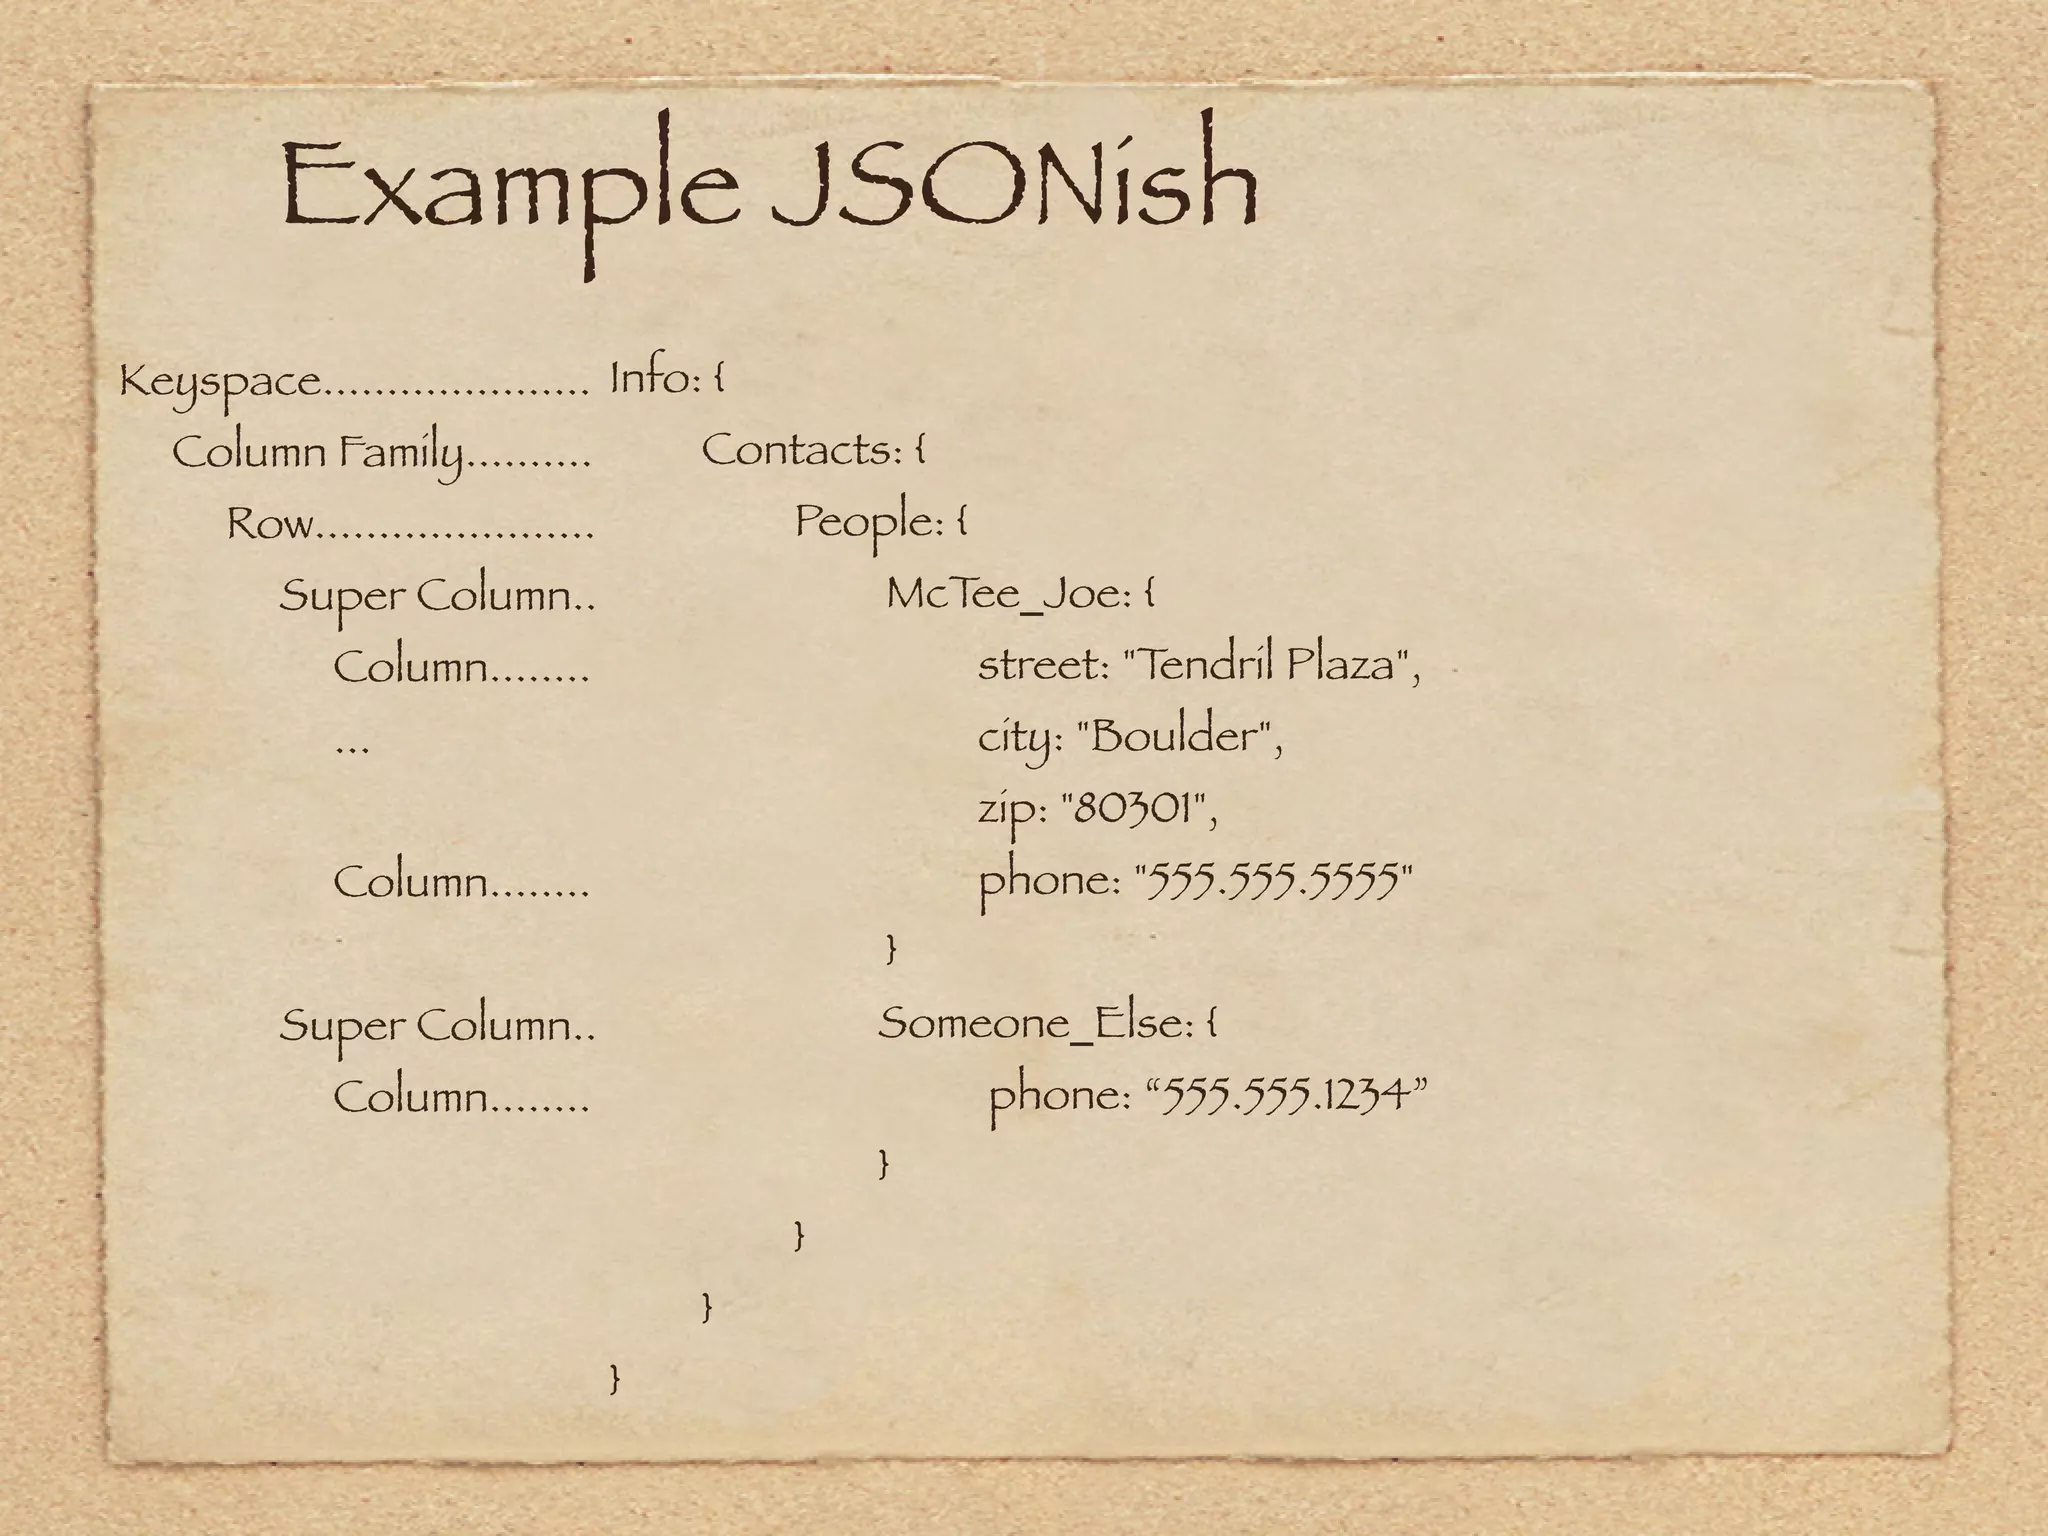 Example JSONish
Keyspace..................... Info: {
Column Family.......... Contacts: {
Row...................... People: {
Super Column.. McTee_Joe: {
Column........ street: "Tendril Plaza",
... city: "Boulder",
zip: "80301",
Column........ phone: "555.555.5555"
}
Super Column.. Someone_Else: {
Column........ phone: “555.555.1234”
}
}
}
}